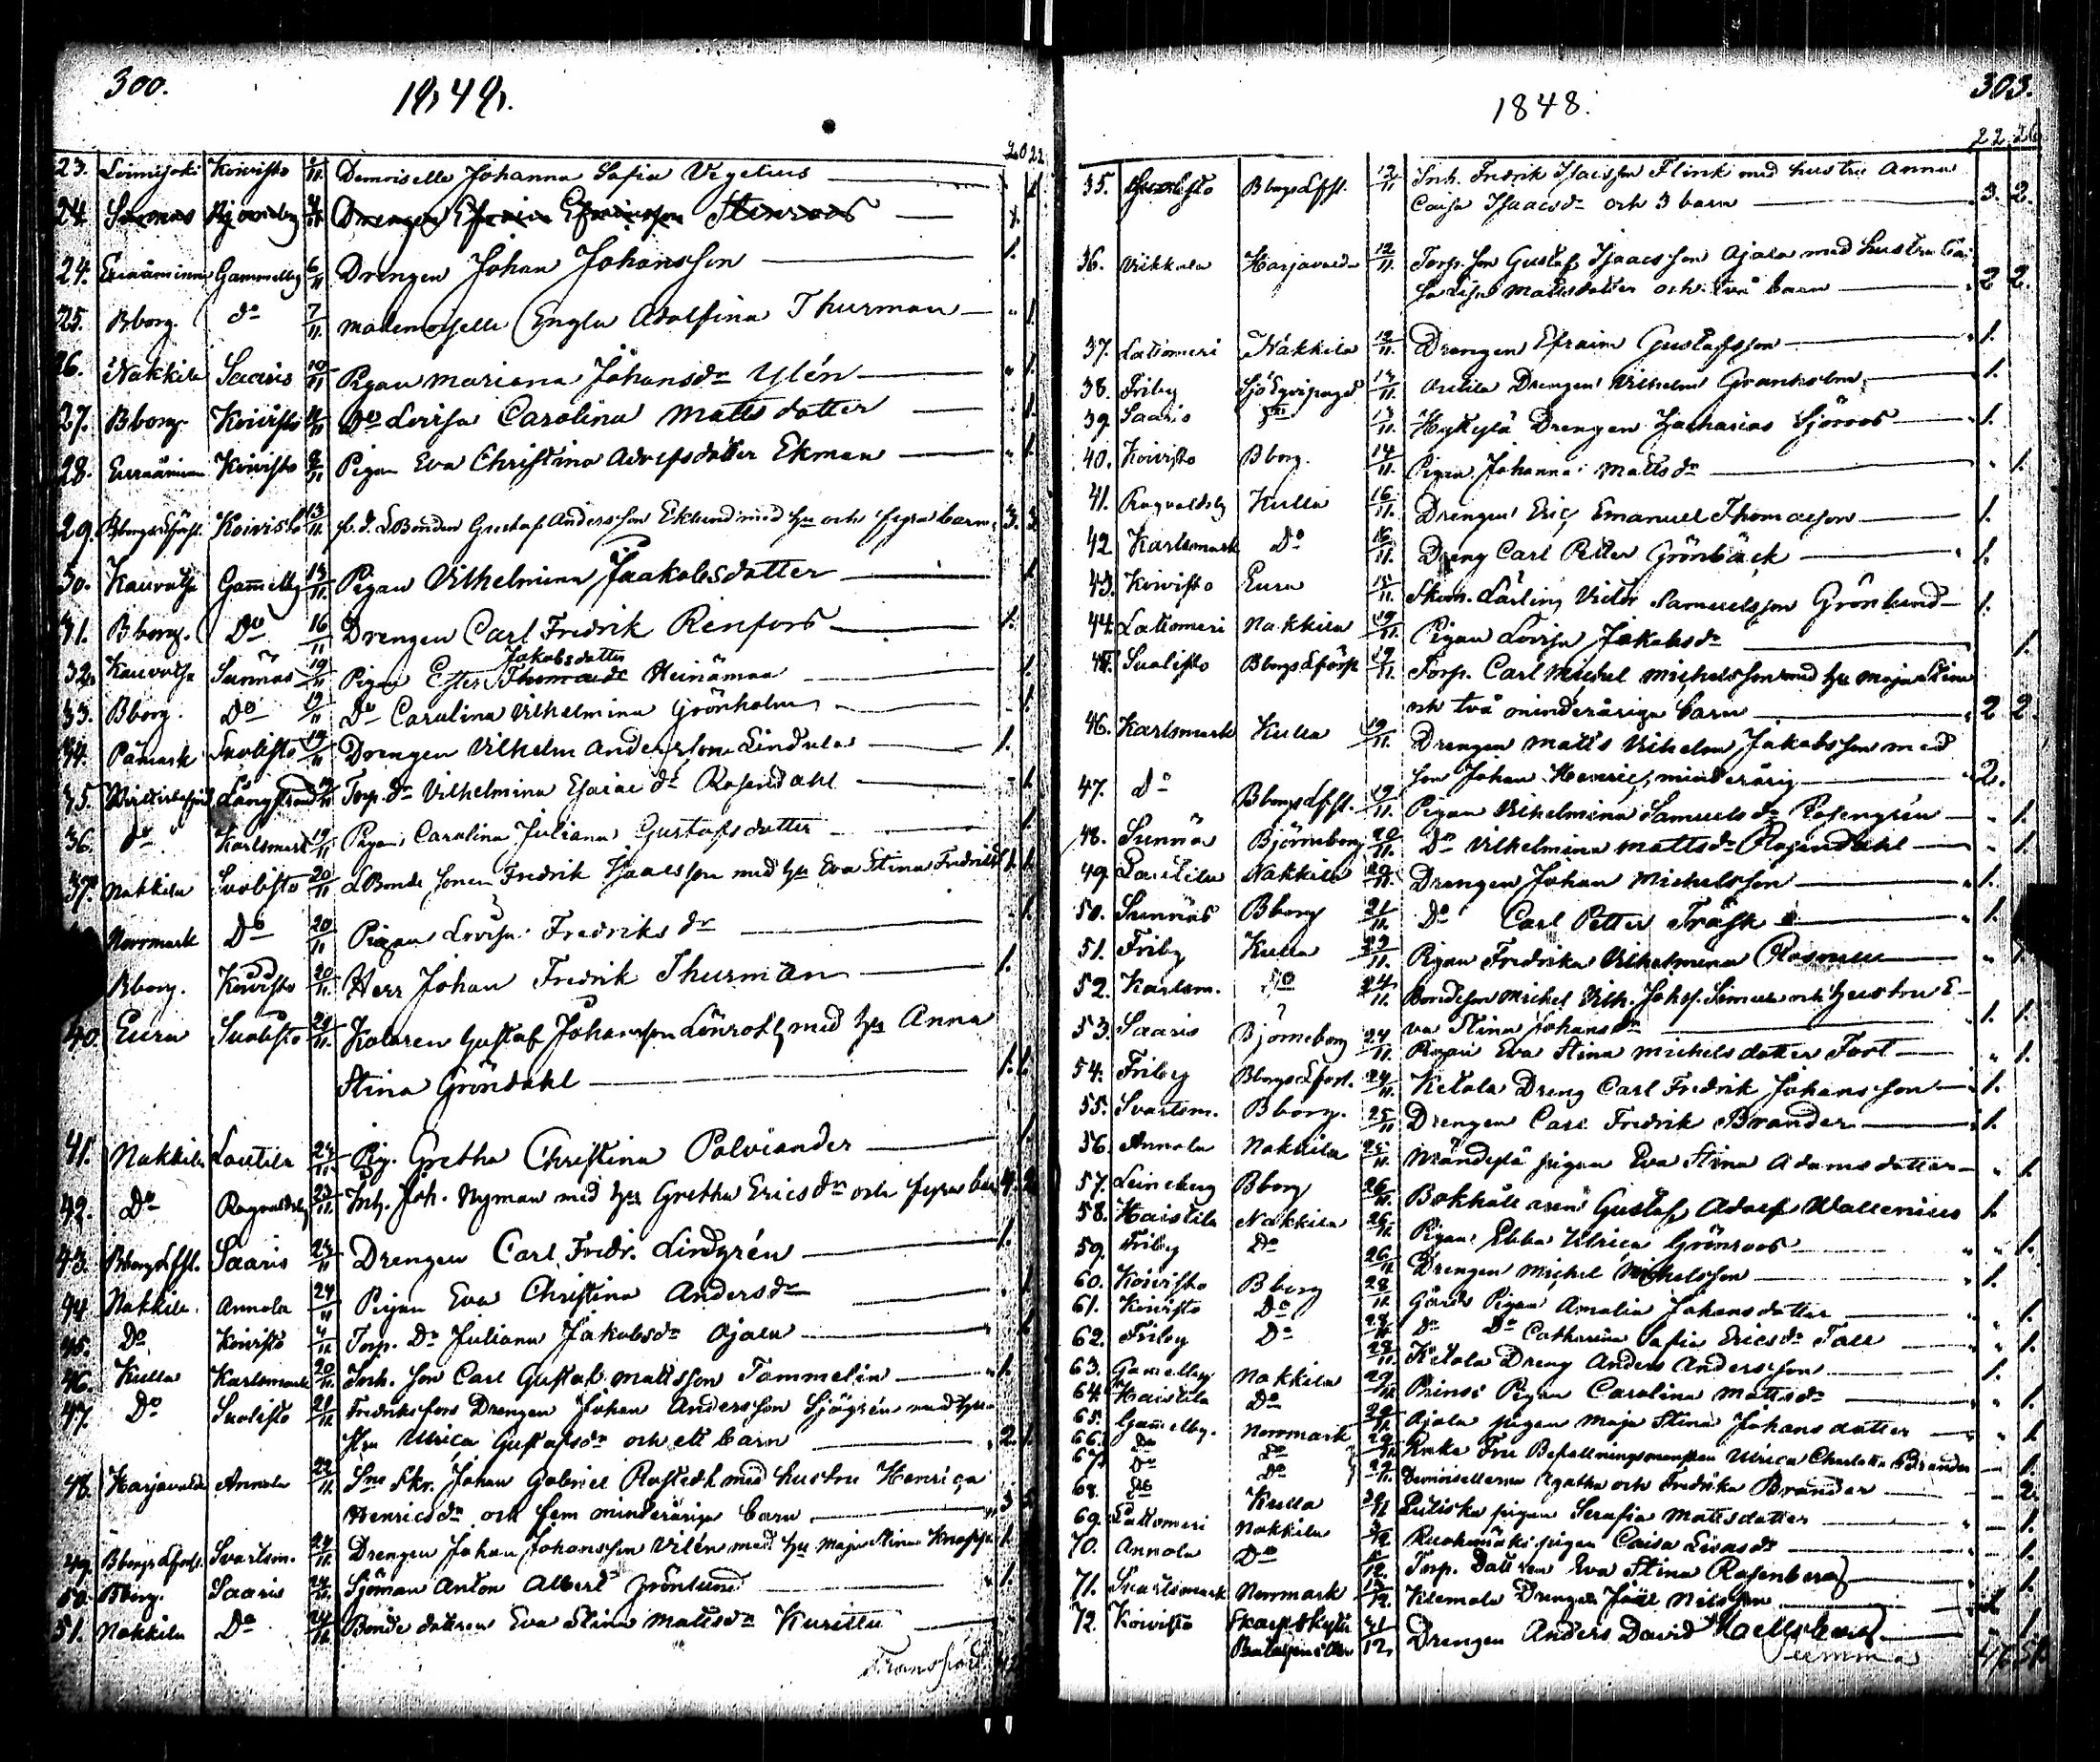 300.
1848.
20 22
23. Loimijoki Koivisto 2/11 Demoiselle Johanna Sofia Vegelius 1
24. Sunnas Bjorneborg Drengen Efraim Efraimsson Stenroos 1.
24. Euraåminne Gammelby 6/11 Drengen Johan Johansson 1.
25. Bborg. do 7/11 Mademoiselle Engla Adolfina Thurman 1.
26. Nakkila Saaris 10/11 Pigan Mariana Johansdr Ylén 1.
27. Bborg. Koivisto Do Lovisa Carolina Matts dotter 1.
28. Euraåminne Koivisto Pigan Eva Christina Adolfsdotter Ekman 1
29. Bborgs Lförs. Koivisto 13/11 f.d. LBonden Gustaf Andersson Eklund med hu och fyra barn 3. 3
30. Kauvatsa Gamelby 13/11 Pigan Vilhelmina Jaakobsdotter 1
31. Bborg. Do 16/11 Drengen Carl Fredrik Renfors 1.
Jakobsdotter
32. Kauvatsa Sunnas 19/11 Pigan Ester Thomasdr Heinämaa 1.
33. Bborg. Do 19/11 Do Carolina Vilhelmina Grönholm 1
34. Påmark Suolisto 19/11 Drengen Vilhelm Andersson Lindula 1.
35. Långstrand 19/11 Torp. dr Vilhelmina Esaiae dr Rosendahl 1.
36. do Karlsmark 19/11 Pigan Carolina Juliana Gustafsdotter 1.
37. Nakkila Suolisto 20/11 LBonde sonen Fredrik Isaacsson med hu Eva Stina Fredriksd 1. 1.
Norrmark Do 20/11 Pigan Lovisa Fredriks dr 1.
Bborg. Koivisto 20/11 Herr Johan Fredrik Thurman 1.
40. Eura Suolisto 20/11 Kolaren Gustaf Johansson Lönroth med hu Anna
Stina Gröndahl 1. 1.
41. Nakkila Lautila 23/11 Pig. Gretha Christina Palviander 1.
42. Do Ragvaldsby 23/11 Inh. Joh. Nyman med hu Gretha Ericsdr och fyra barn 4. 2
43. Bborgs Lfst. Saaris 23/11 Drengen Carl Fredr. Lindgrén 1.
44. Nakkila. Annola 24/11 Pigan Eva Christina Andersdr 1
45. Do Koivisto Torp. Dr Juliana Jakobsdr Ojala 1
46. Kulla Karlsmark 20/11 Inh. son Carl Gustaf Mattsson Tammelin 1.
47. Do Suolisto 21/11 Fredriksfors Drengen Johan Andersson Sjögrén med hu
stru Ulrica Gustafsdr och ett barn 2. 1.
48. Harjavalda Annola 22/11 Johan Gabriel Rostedt med hustru Henrica
Henricsdr och fem minderåriga barn 3 5
49. Bborgs Lförs. Svartsm. 24/11 Drengen Johan Johansson Vilén med hu Maja Stina 1.
50. Bborg. Saaris 24/11 Sjöman Anton Albert Grönlund 1.
51. Nakkila Do 24/11 Bonde dottren Eva Stina Mattsdr Kurittu
Transport
303.
1848.
22. 26
35. Suolisto Bborgs Lfst. 12/11 Inh. Fredrik Isacsson Flink med hustru Anna
Caisa Isaacsdr och 3 barn 3. 2.
36. Viikkala Harjavalda 12/11 Torp. son Gustaf Isaacsson Ojala med hustru Cai-
sa Lisa Mattsdotter och två barn 2 2.
37. Lattomeri Nakkila 12/11 Drengen Efraim Gustafsson 1.
38. Friby 13/11 Drengen Vilhelm Granholm 1.
39. Saaris Do 13/11 Hyhkylä Drengen Zacharias Sjöroos 1.
40. Koivisto Bborg. 14/11 Pigan Johanna Mattsdr 1.
41. Ragvaldsby Kulla 16/11 Drengen Eric Emanuel Thomasson 1.
42. Karlsmark Do 16/11 Dreng Carl Petter Grönbäck 1.
43. Koivisto Eura Skom. Lärling Victor Samuelsson Grönlund 1.
44. Lattomeri Nakkila 19/11 Pigan Lovisa Jakobsdr 1.
45. Suolisto Bborgs Lförs 19/11 Torp. Carl Michel Michelsson med hu Maja Stina
och två minderåriga barn 2 2.
46. Karlsmark Kulla 19/11 Drengen Matts Vilhelm Jakobsson med
son Johan Henric, minderårig 2.
47. Do Bborgs Lfst. 19/11 Pigan Vilhelmina Samuelsdr Rosengrén 1.
48. Sunnäs Björneborg 20/11 Do Vilhelmina Mattsdr Rosendahl 1.
49. Lautila Nakkila 20/11 Drengen Johan Michelsson 1.
50. Sunnäs Bborg 21/11 Do Carl Petter Träsk 1.
51. Friby Kulla 23/11 Pigan Fredrika Vilhelmina Rosnell 1
52. Karlsm. Do 24/11 Bondeson Michel Vilh. Johss. Simula och hustru E-
va Stina Johansdr 1. 1.
53. Saaris Björneborg 24/11 Pigan Eva Stina Michelsdotter Fort 1.
54. Friby Bborgs Lförs. 24/11 Ketola Dreng Carl Fredrik Johansson 1.
55. Svartsm. Bborg. 25/11 Drengen Carl Fredrik Brander 1.
56. Annola Nakkila 25/11 Mändistä pigan Eva Stina Adamsdotter 1
57. Leineberg Bborg 26/11 Bokhållaren Gustaf Adolf Wallenius 1.
58. Haistila Nakkila 26/11 Pigan Ebba Ulrica Grönroos 1.
59. Friby Do 26/11 Drengen Michel Michelsson 1.
60. Koivisto Bborg 28/11 Gårds Pigan Amalia Johansdotter 1.
61. Koivisto Do 28/11 Do Do Catharina Sofia Ericsdr Tall 1.
62. Friby Do 29/11 Ketola Dreng Anders Andersson 1.
63. Gamelby Nakkila 29/11 Prinsi Pigan Carolina Mattsdr 1.
64. Haistila Do 29/11 Ojala pigan Maja Stina Johansdotter 1
65. Gamelby. Norrmark 29/11 Enke Fru Befallningsmanskan Ulrica Charlotta Brander 1.
66. Do Do 29/11 Demoisellerna Agatha och Fredrika Brander 2.
67. Do Do
68. Do Kulla 30/11 pigan Serafia Mattsdotter 1.
69. Lattomeri Nakkila Ruohomäki pigan Caisa 1.
70. Annola Do Torp. Dottren Eva Stina Rosenberg 1.
71. Svartsmark Norrmark 13/12 Klemola Drengen Joel Nilsson 1
72. Koivisto 21/12. Drengen Anders David 1.
Summa 46 51